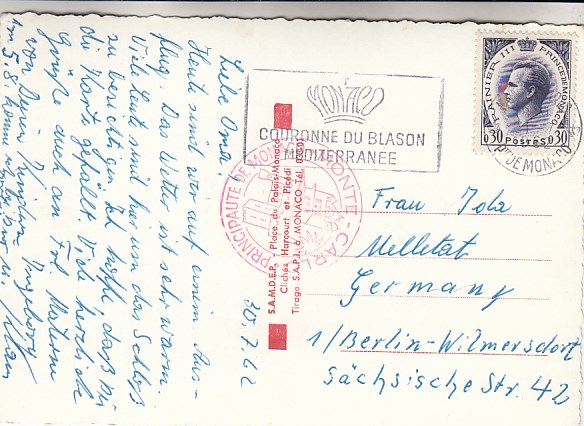 Liebe Oma,
Heute sind wir auf einem Aus-
flug. Das Wetter ist sehr warm.
Viele Leute sind hier um das Schloß
zu besichtigen. Ich hoffe, daß Dir
die Karte gefällt. Viele herzliche
Grüße auch an Frl.
von Deinen Kindern Ingeborg
am 5.8. kommen
30.7.62
MONACO
COURONNE DU BLASON
MEDITERRANEE
RAINIER III PRINCE DE MONACO
0,30 POSTES 0,30
PRINCIPAUTÉ DE MONACO MONTE-CARLO
S.A.M.D.E.P. - Place du Palais-Monaco
Clichés Harcourt et Picédi
Tirage S.A.P.I. 6, MONACO Tél.
Frau Jola
Melletat
Germany
1/Berlin-Wilmersdorf
Sächsische Str. 42